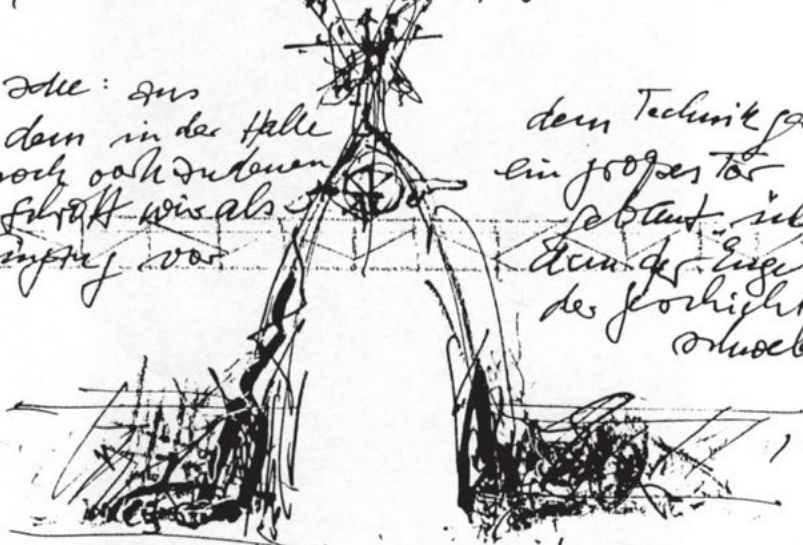 aus
dem in der Halle
noch vorhandenen
Schrott wir als
Eingang vor
dem Technik
ein großes Tor
gebaut
dem der Enge
der Geschicht
schweb